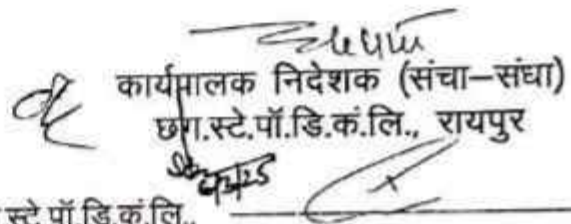 कार्यपालक निदेशक (संचा–संधा)
छग.स्टे.पॉ.डि.कं.लि., रायपुर
स्टे.पॉ.डि.कं.लि.,